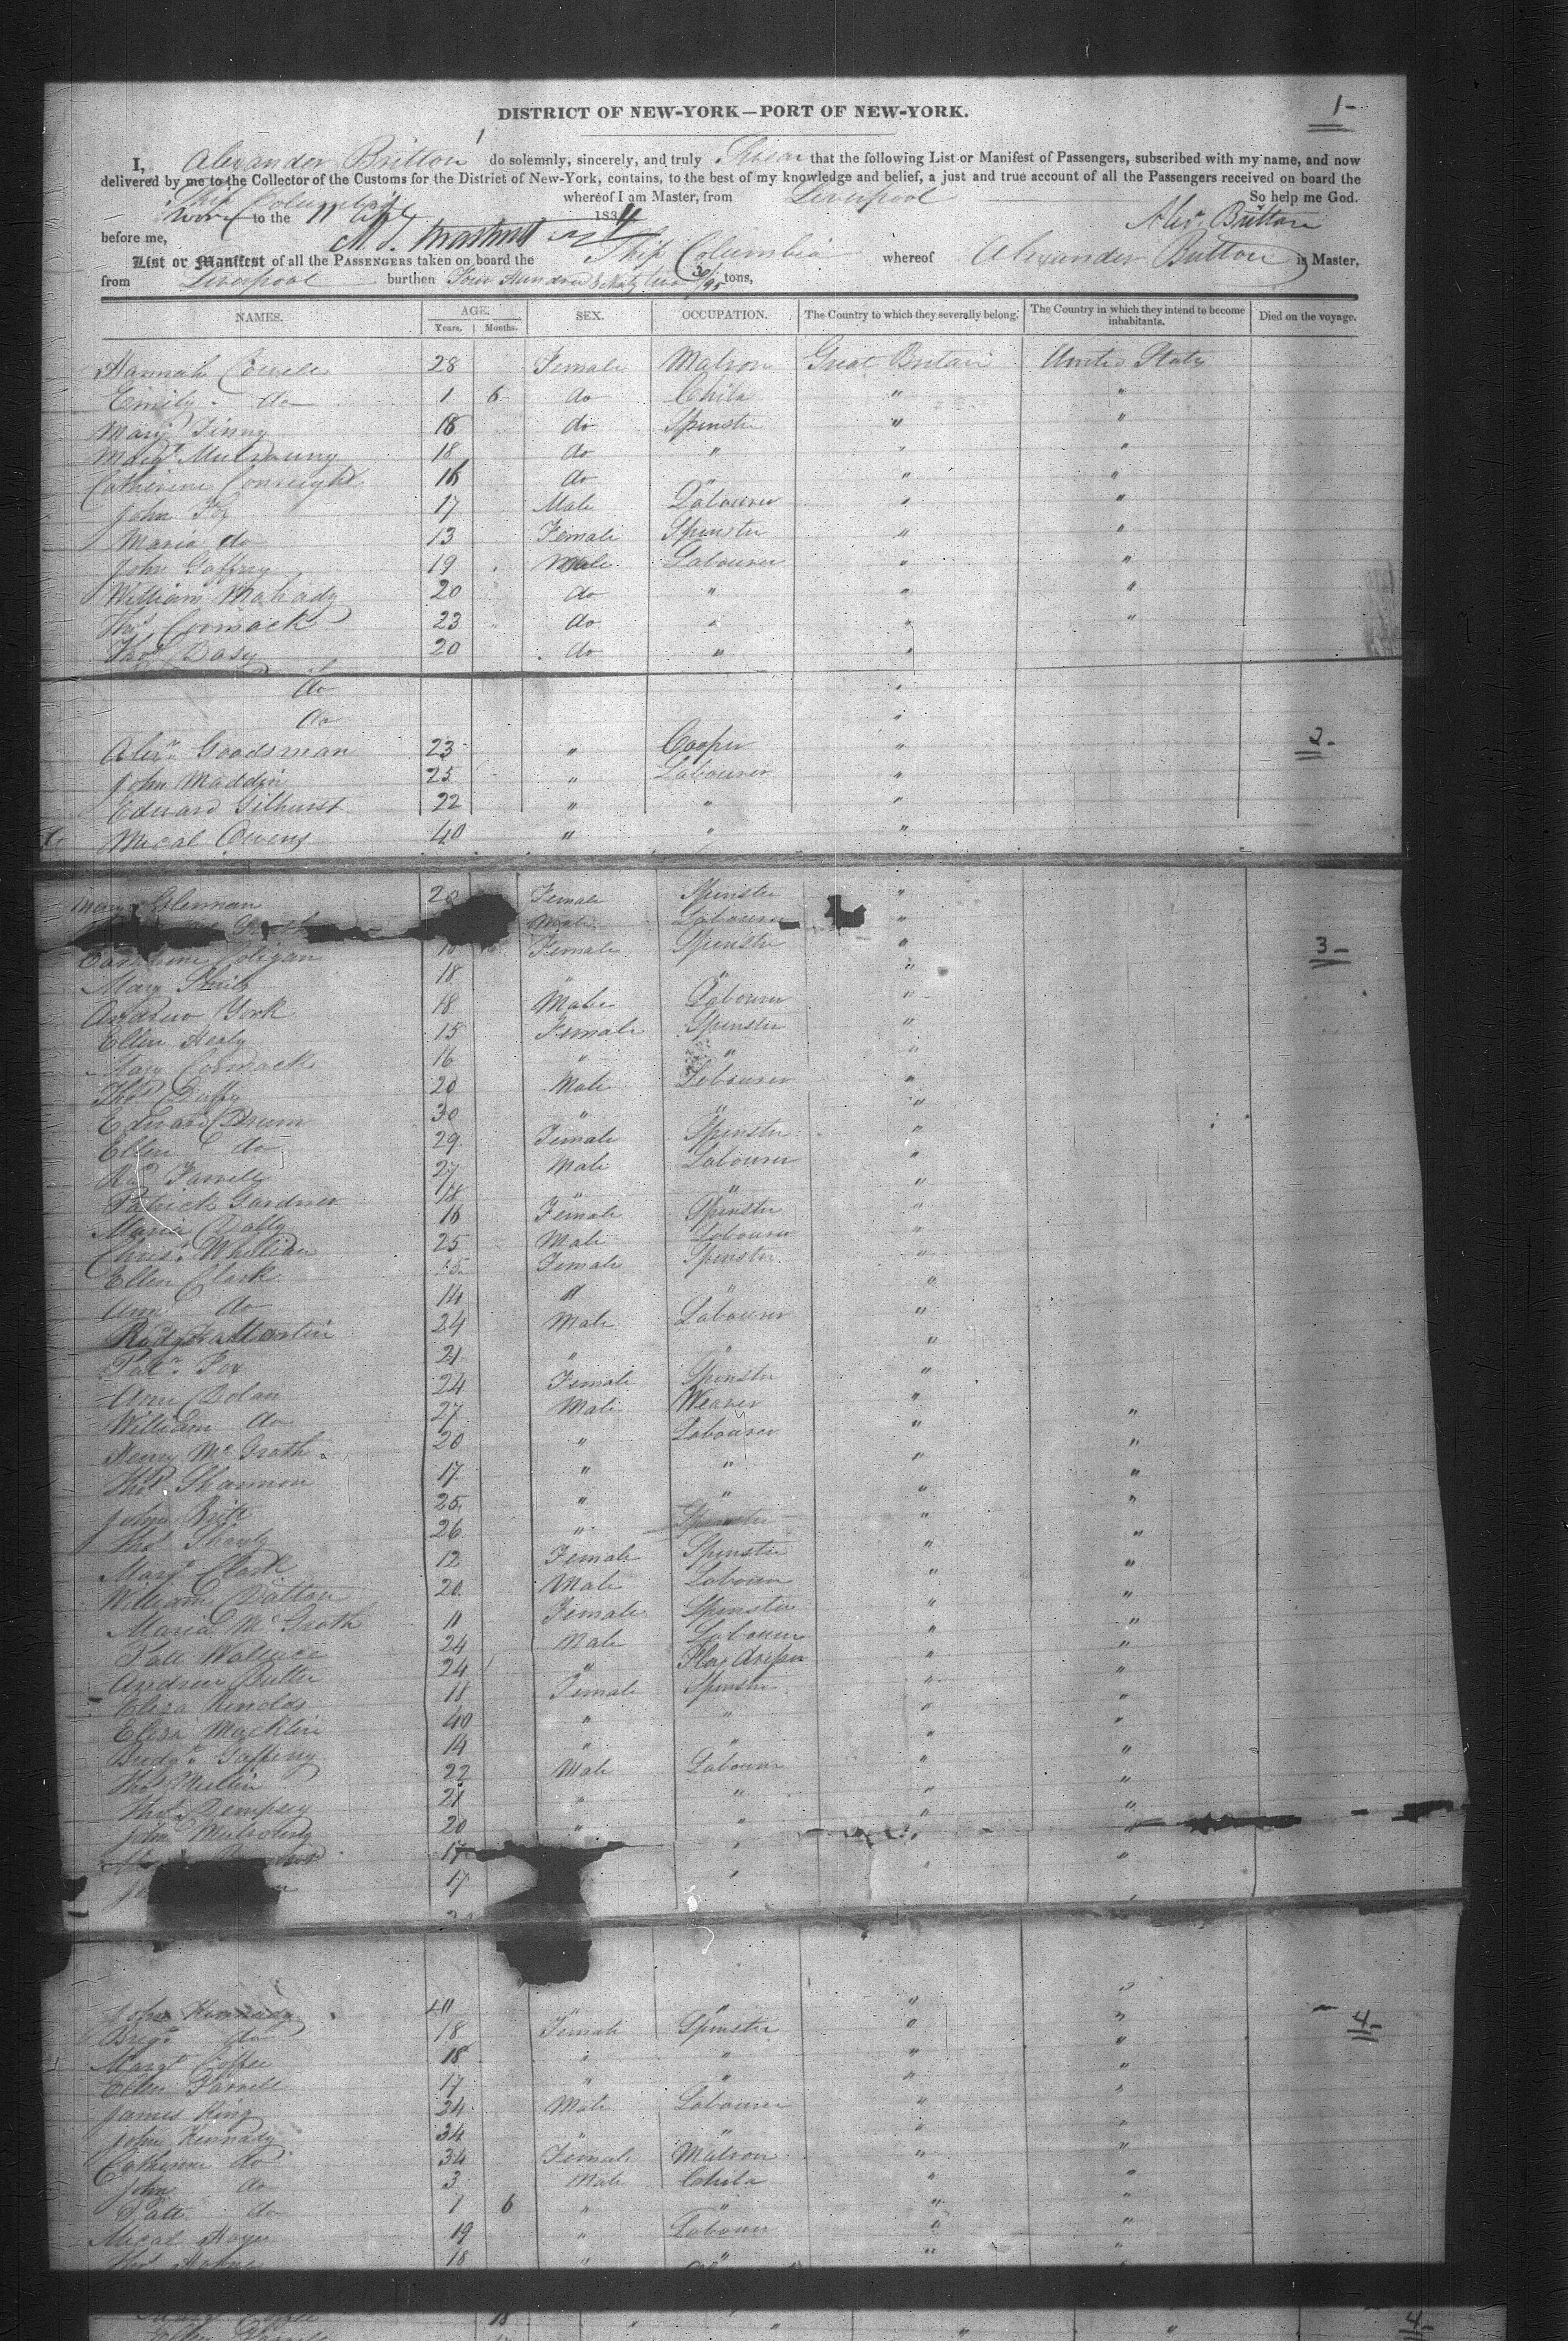 1-
DISTRICT OF NEW-YORK—PORT OF NEW-YORK.
I, Alexander Britton do solemnly, sincerely, and truly Swear that the following List or Manifest of Passengers, subscribed with my name, and now
delivered by me to the Collector of the Customs for the District of New-York, contains, to the best of my knowledge and belief, a just and true account of all the Passengers received on board the
Ship Columbia whereof I am Master, from Liverpool So help me God.
Sworn to the 11 1834 Alexr. Britton
before me,
List or Manifest of all the PASSENGERS taken on board the Ship Columbia whereof Alexander Britton is Master,
from Liverpool burthen Four Hundred & Ninty two 30/95 tons,
NAMES. AGE. Years. Months. SEX. OCCUPATION. The Country to which they severally belong. The Country in which they intend to become inhabitants. Died on the voyage.
Hannah 28 Female Matron Great Britain United States
Emily do 1 6 do Child " "
Mary 18 do Spinster " "
Margt 18 do " " "
Catherine 16 do " " "
John Fox 17 Male Labourer " "
Maria do 13 Female Spinster " "
John Gaffny 19 Male Labourer " "
William Mahady 20 do " " "
Thos Cormack 23 do " " "
Thos 20 do " "
do "
do "
Alexr. Goodsman 23 " Cooper " 2-
John Maddin 25 " Labourer "
Edward Gilhurst 22 " " "
Mical Owens 40 " " "
Mary Glennan 20 Female Spinster "
Male Labourer "
Female Spinster " 3-
Mary 18 " " "
Andrew York 18 Male Labourer "
Ellen Healy 15 Female Spinster "
Mary Cormack 16 " " "
Thos Duffy 20 Male Labourer "
Edward Drum 30 " " "
Ellen do 29 Female Spinster "
Farrell 27 Male Labourer "
Patrick Gardner 18 " " "
Maria Duffy 16 Female Spinster "
Chrisr. 25 Male Labourer "
Ellen Clark Female Spinster "
Ann do 14 " " "
Martin 24 Male Labourer "
Patr. Fox 21 " " "
Ann Dolan 24 Female Spinster "
William do 27 Male Weaver " "
Henry McGrath 20 " Labourer " "
Thos Shannon 17 " " " "
John Britt 25 " " " "
Thos 26 " " "
Margt Clark 12 Female Spinster " "
William Dalton 20 Male Labourer " "
Maria McGrath 11 Female Spinster " "
Patt Wallace 24 Male Labourer " "
Andrew Butler 24 " Flax dresser " "
Eliza Rinolds 18 Female Spinster " "
Eliza Macklin 40 " " " "
Bridgt. Gaffiny 14 " " " "
Thos Mullin 22 Male Labourer " "
Thos Dempsey 21 " " " "
John 20 " " " "
17 " " "
17 " "
John Kennady " " " 4-
Brigt. do 18 Female Spinster " "
Margt Coffee 18 " " " "
Ellen Farrell 17 " " " "
James King 24 Male Labourer " "
John Kennady 34 " " " "
Catherine do 34 Female Matron " "
John do 3 Male Child " "
Patt do 1 6 " " " "
Mical 19 " Labourer " "
Thos 18 " " " "
Margt Coffee 18 4-
Ellen Farrell " "